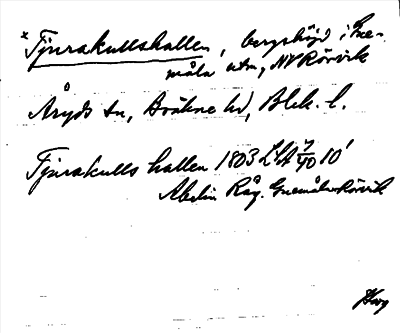 *Tjurakullshallen, bergshöjd i Gue-
måla utm, NV Rörvik
Åryds sn, Bräkne hd, Blek. l.
Tjurakulls hallen 1803 LSA 7/40 10'
Abelin Råg. Guemåla-Rörvik